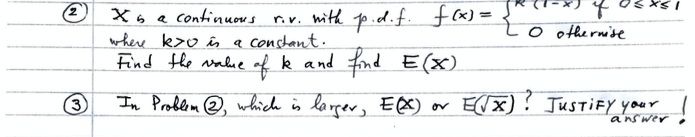 ② X is a continuous r.v. with p.d.f. f(x) = { k (1-x) if 0≤x≤1
where k>0 is a constant. 0 otherwise
Find the value of k and find E(X)
③ In Problem ②, which is larger, E(X) or E(√X)? JUSTIFY your
answer!